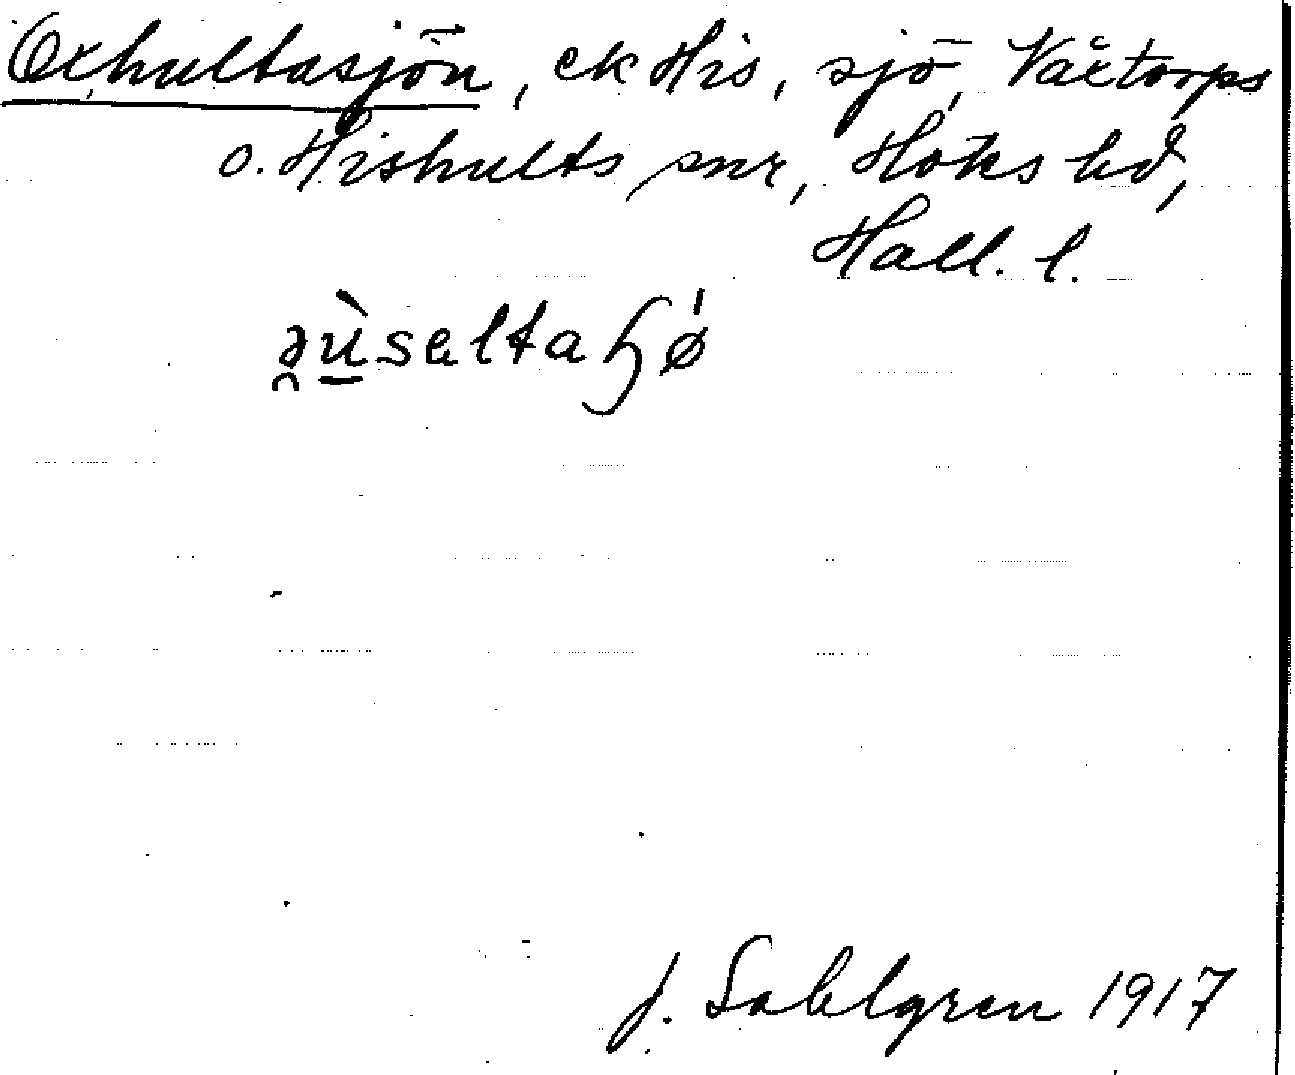 Oxhultasjön, ek His, sjö, Våxtorps
o. Hishults snr, Höks hd,
Hall. l.
ə̯ùsəltaɧǿ
J. Sahlgren 1917